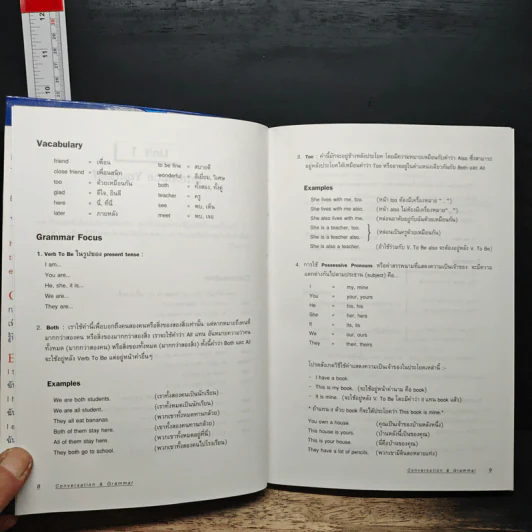 Vacabulary
friend = เพื่อน
to be fine = สบายดี
close friend = เพื่อนสนิท
wonderful = ดีเยี่ยม, วิเศษ
too = ด้วยเหมือนกัน
both = ทั้งสอง, ทั้งคู่
glad = ดีใจ, ยินดี
teacher = ครู
here = นี่, ที่นี่
see = พบ, เห็น
later = ภายหลัง
meet = พบ, เจอ
Grammar Focus
1. Verb To Be ในรูปของ present tense :
I am...
You are...
He, she, it is...
We are...
They are...
2. Both : เราใช้คำนี้เพื่อบอกถึงคนสองคนหรือสิ่งของสองสิ่งเท่านั้น แต่หากหมายถึงคนที่
มากกว่าสองคน หรือสิ่งของมากกว่าสองสิ่ง เราจะใช้คำว่า All แทน อันหมายความว่าคน
ทั้งหมด (มากกว่าสองคน) หรือสิ่งของทั้งหมด (มากกว่าสองสิ่ง) ทั้งนี้คำว่า Both และ All
จะใช้อยู่หลัง Verb To Be แต่อยู่หน้าคำอื่นๆ
Examples
We are both students. (เราทั้งสองคนเป็นนักเรียน)
We are all student. (เราทั้งหมดเป็นนักเรียน)
They all eat bananas. (พวกเขาทั้งหมดทานกล้วย)
Both of them stay here.
All of them stay here. (พวกเขาทั้งหมดอยู่ที่นี่)
They both go to school. (พวกเขาทั้งสองคนไปโรงเรียน)
8 Conversation & Grammar
3. Too : คำนี้มักจะอยู่ข้างหลังประโยค โดยมีความหมายเหมือนกับคำว่า Also ซึ่งสามารถ
อยู่หลังประโยคได้เหมือนคำว่า Too หรืออาจอยู่ในตำแหน่งเดียวกันกับ Both และ All
Examples
She lives with me, too. (หน้า too ต้องมีเครื่องหมาย " , ")
She lives with me also. (หน้า also ไม่ต้องมีเครื่องหมาย " , ")
She also lives with me. (หล่อนอาศัยอยู่กับฉันด้วยเหมือนกัน)
She is a teacher, too.
She is a teacher also. (หล่อนเป็นครูด้วยเหมือนกัน)
She is also a teacher. (ถ้าใช้ร่วมกับ V. To Be also จะต้องอยู่หลัง V. To Be)
4. การใช้ Possessive Pronouns หรือคำสรรพนามที่แสดงความเป็นเจ้าของ จะมีความ
แตกต่างกันไปตามประธาน (subject) คือ...
I = my, mine
You = your, yours
He = his, his
She = her, hers
It = its, its
We = our, ours
They = their, theirs
- I have a book.
- This is my book. (จะใช้อยู่หน้าคำนาม คือ book)
- It is mine. (จะใช้อยู่หลัง V. To Be โดยมีคำว่า it แทน book แล้ว)
* ถ้าแทน it ด้วย book ก็จะได้ประโยคว่า This book is mine.*
You own a house. (คุณเป็นเจ้าของบ้านหลังหนึ่ง)
This house is yours. (บ้านหลังนี้เป็นของคุณ)
This is your house. (นี่คือบ้านของคุณ)
They have a lot of pencils.
Conversation & Grammar 9